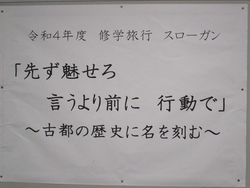 令和4年度 修学旅行 スローガン
「先ず魅せろ
言うより前に 行動で」
～古都の歴史に名を刻む～